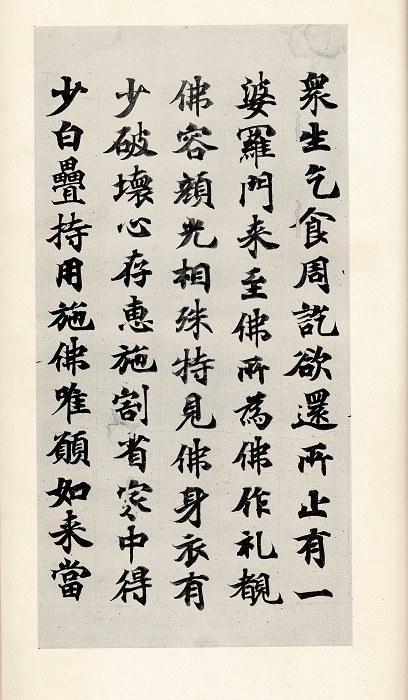 衆生乞食周訖欲還所止有一
婆羅門来至佛所為佛作礼覩
佛容顔光相殊特見佛身衣有
少破壞心存惠施割省家中得
少白疊持用施佛唯願如来當